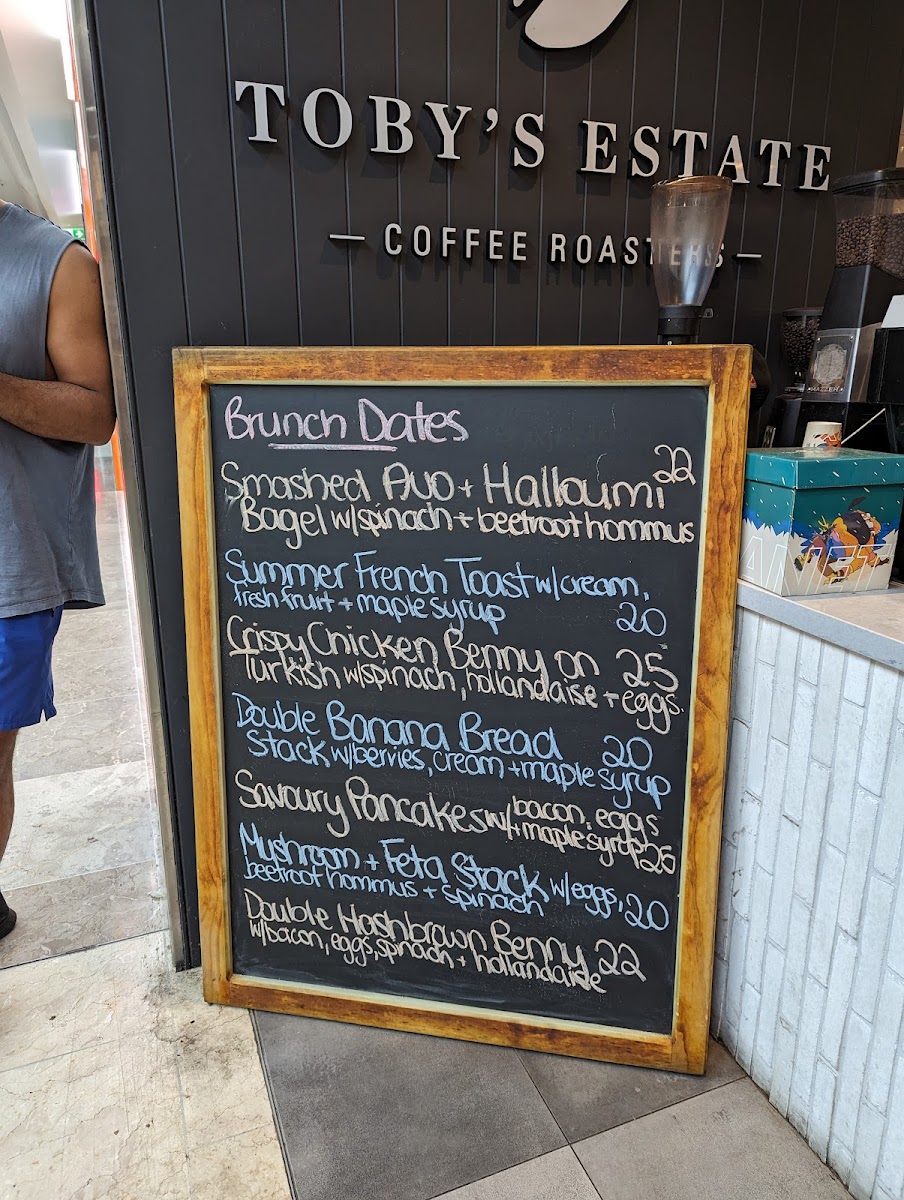 TOBY'S ESTATE
— COFFEE ROASTERS —
Brunch Dates
Smashed Avo + Halloumi 22
Bagel w/spinach + beetroot hommus
Summer French Toast w/cream,
fresh fruit + maple syrup 20
Crispy Chicken Benny on 25
Turkish w/spinach, hollandaise + eggs.
Double Banana Bread 20
Stack w/berries, cream + maple syrup
Savoury Pancakes w/ bacon, eggs
+ maple syrup 26
Mushroom + Feta Stack w/eggs,
beetroot hommus + spinach 20
Double Hashbrown Benny 22
w/bacon, eggs, spinach + hollandaise
MAZZER